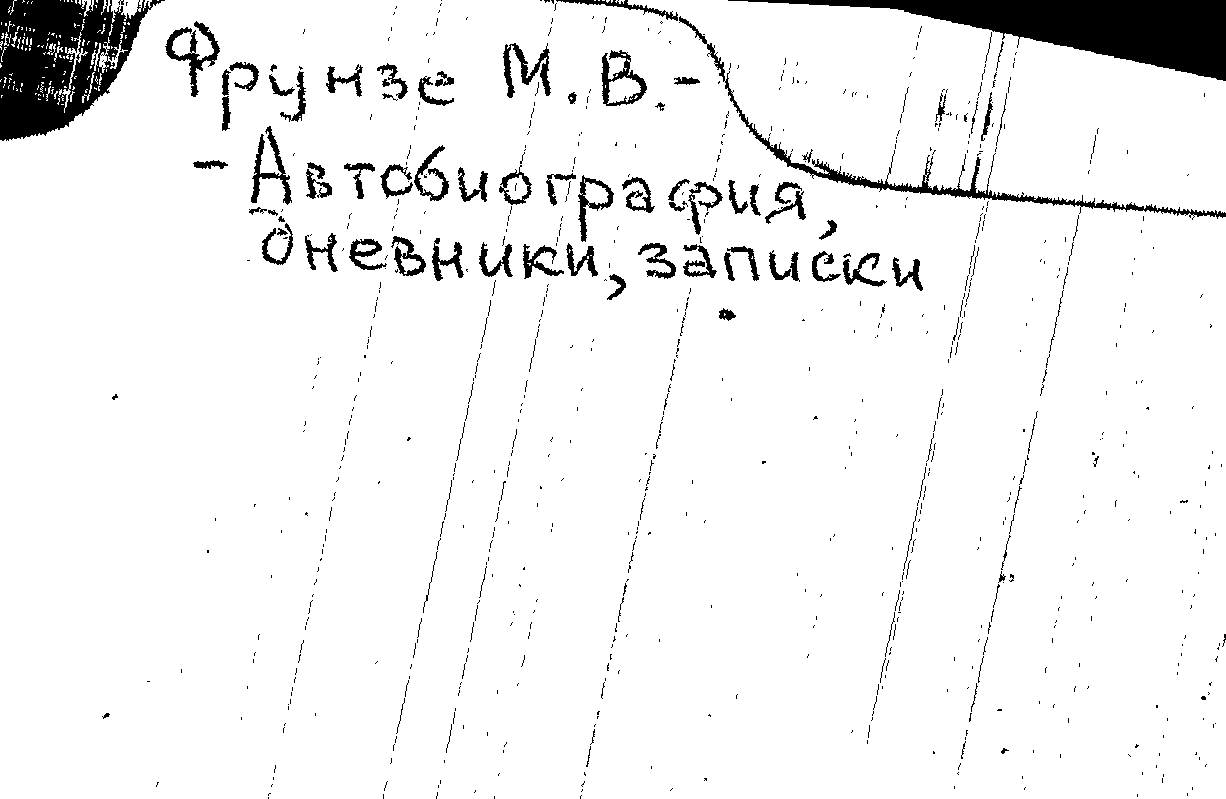 Фрунзе М.В.-
-Автобиография,
дневники, записки